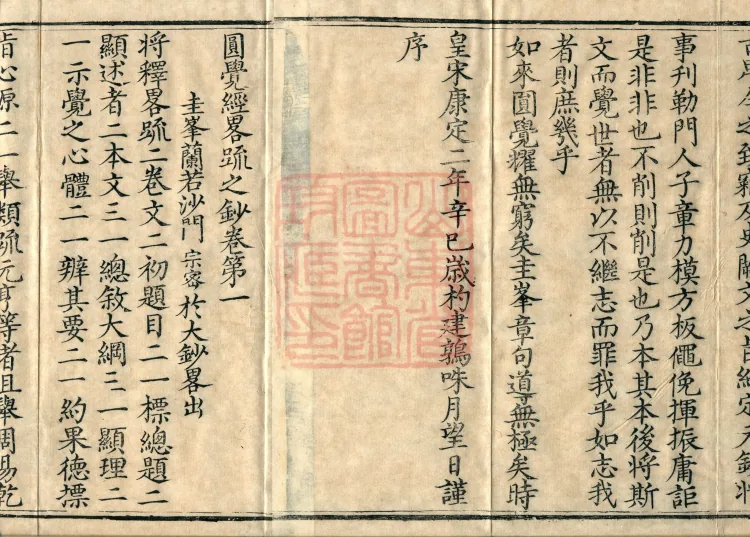 事刋勒門人子章力模方板僶俛揮振庸詎
是非非也不削則削是也乃本其本後將斯
文而覺世者無以不繼志而罪我乎如志我
者則庶幾乎
如來圓覺耀無窮矣圭峯章句導無極矣時
皇宋康定二年辛巳嵗杓建鶉咮月望日謹
序
圓覺經畧疏之鈔卷第一
圭峯蘭若沙門宗密於大鈔畧出
將釋畧疏二卷文二初題目二一標總題二
顯述者二本文三一總敘大綱三一顯理二
一示覺之心體二一辨其要二一約果德標
指心源二一舉類疏元亨等者且舉周易乾